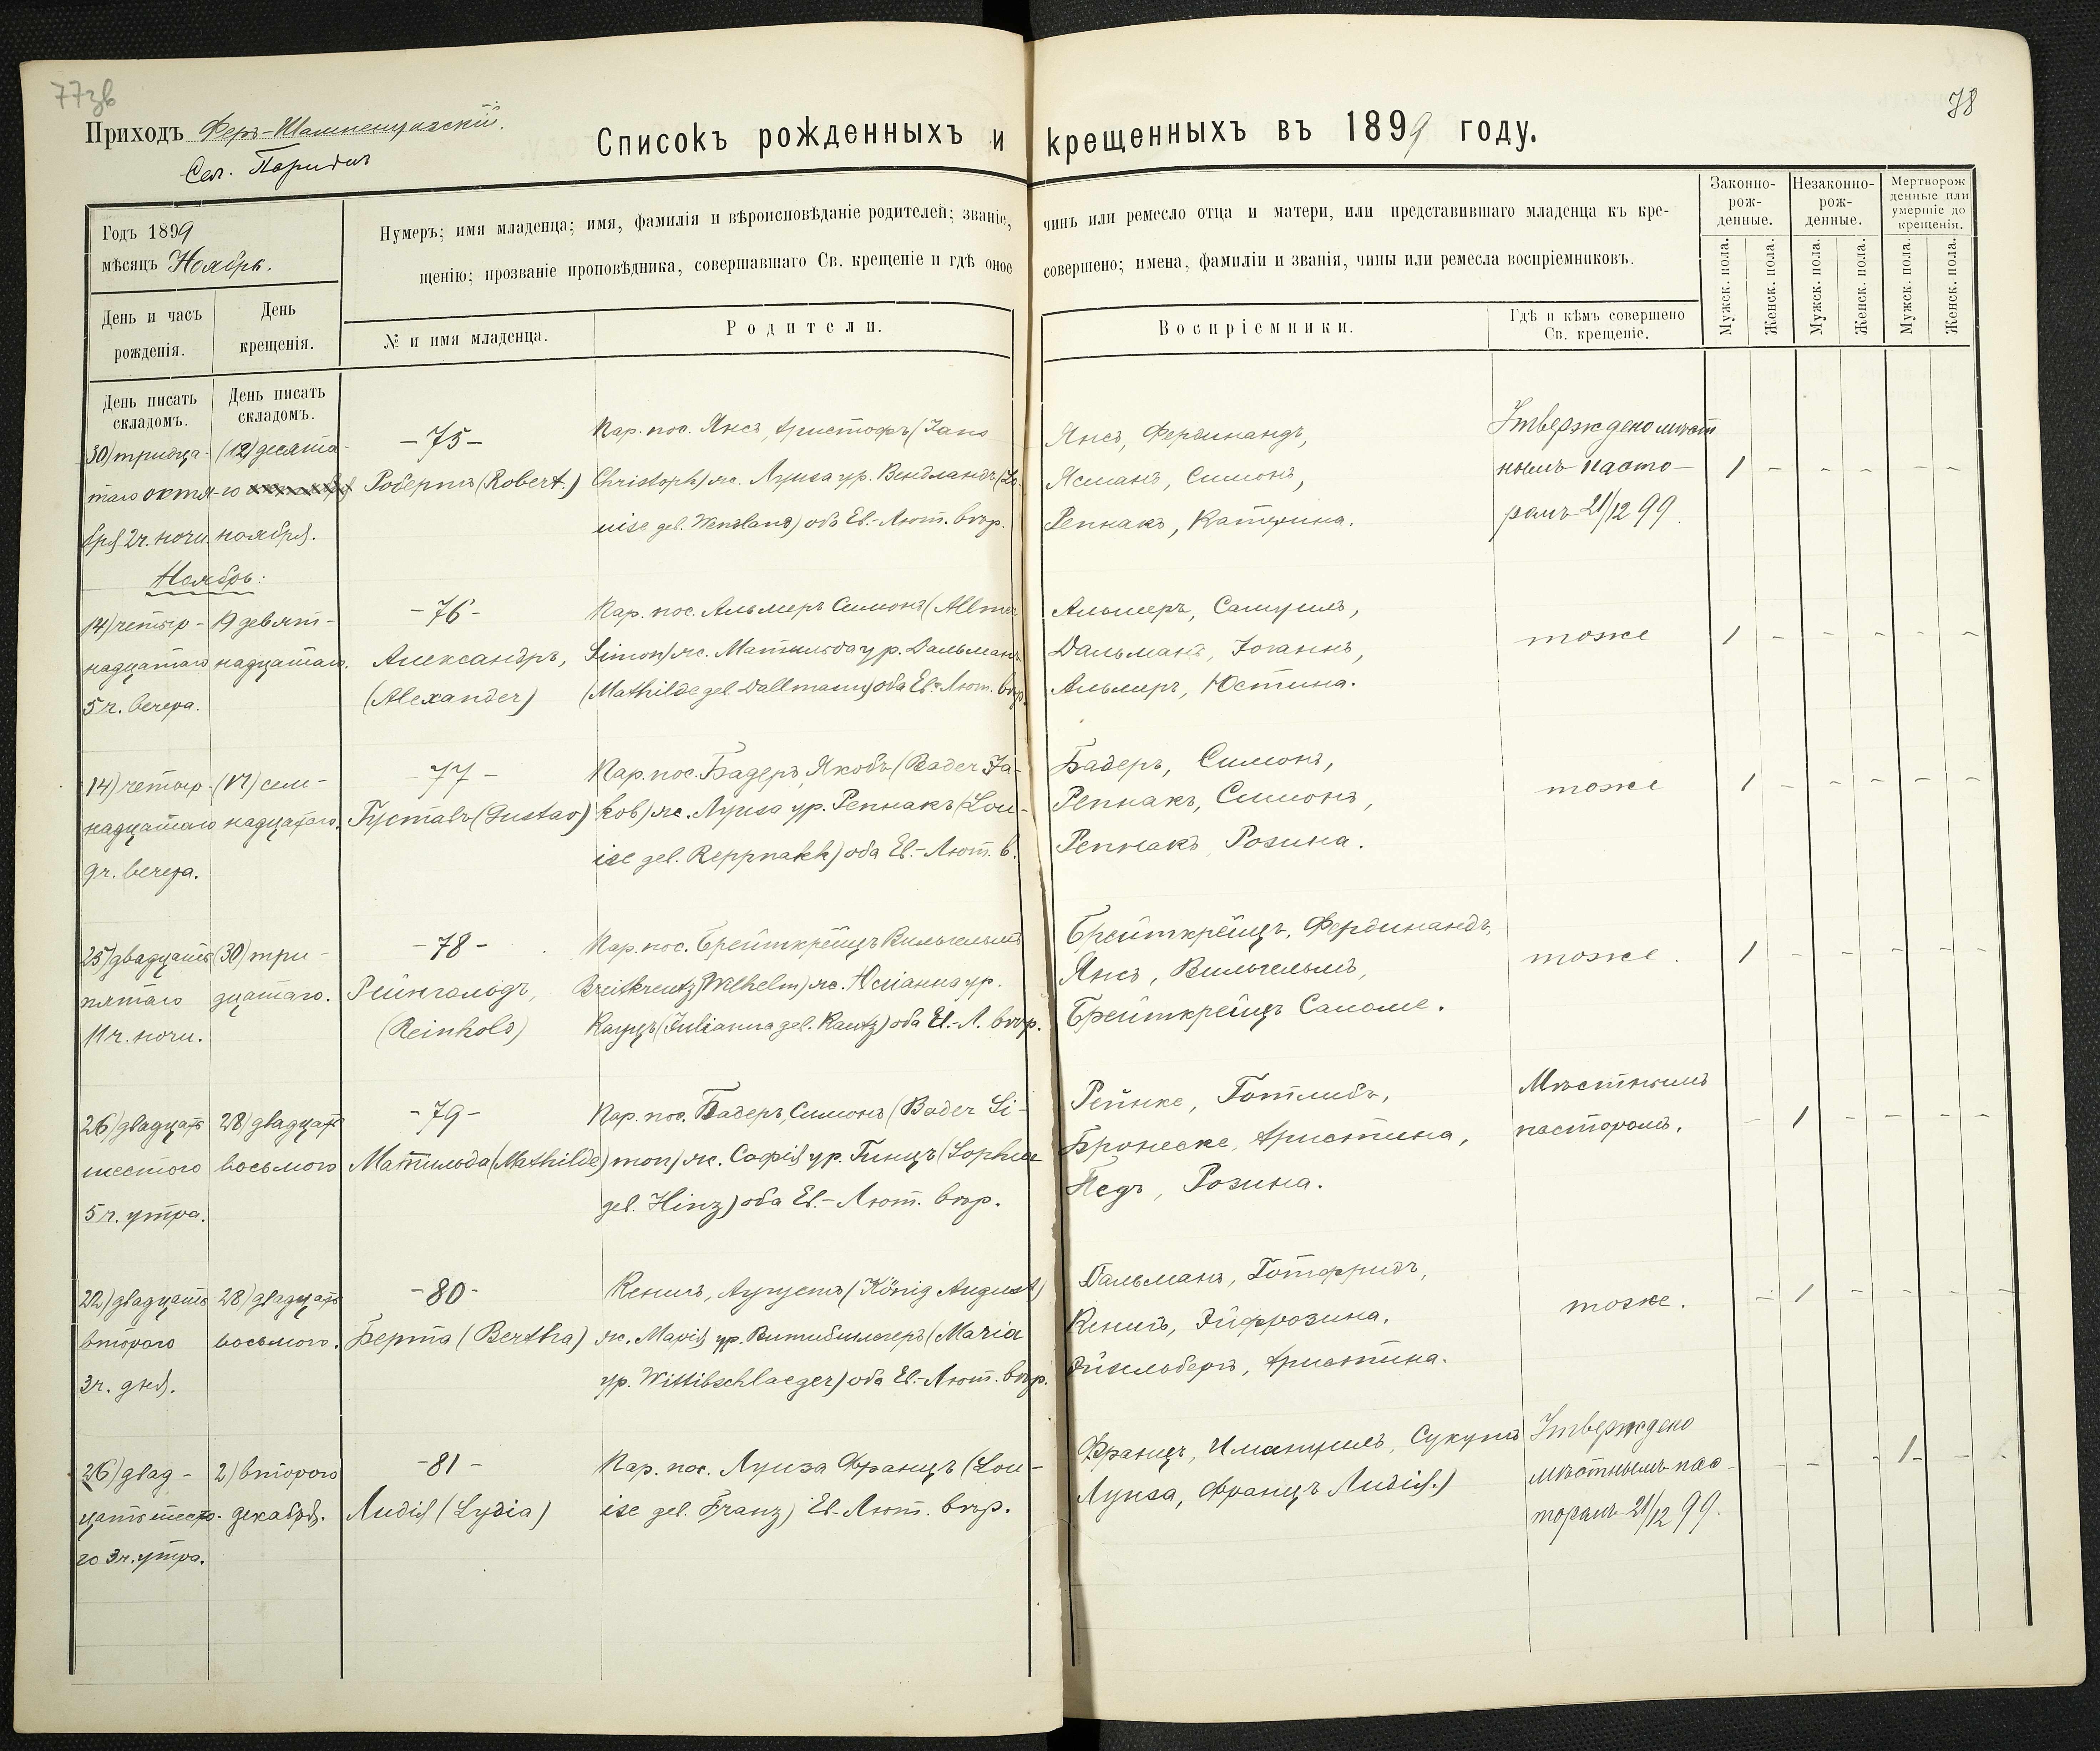 77зв
78
Приходъ Феръ-Шампенуазскій.
Сел. Паридъ
Списокъ рожденныхъ и крещенныхъ въ 1899 году.
Годъ 1899
мѣсяцъ Ноябрь.
Нумеръ; имя младенца; имя, фамилія и вѣроисповѣданіе родителей; званіе, чинъ или ремесло отца и матери, или представившаго младенца къ кре-
щенію; прозваніе проповѣдника, совершавшаго Св. крещеніе и гдѣ оное совершено; имена, фамиліи и званія, чины или ремесла воспріемниковъ.
Законно-
рож-
денные.
Незаконно-
рож-
денные.
Мертворож
денные или
умершіе до
крещенія.
Мужск. пола.
Женск. пола.
Мужск. пола.
Женск. пола.
Мужск. пола.
Женск. пола.
День и часъ
рожденія.
День
крещенія.
№ и имя младенца.
Родители.
Воспріемники.
Гдѣ и кѣмъ совершено
Св. крещеніе.
День писать
складомъ.
День писать
складомъ.
30) тридца-
таго октя-
бря 2 ч. ночи.
(12) десята-
го
ноября.
-75-
Робертъ (Robert.)
Кар. пос. Янсъ, Христофъ (Jans
Christoph) ж. Луиза ур. Вендландъ (Lo-
uise geb. Wendland) оба Ев.-Лют. вѣр.
Янсъ, Фердинандъ,
Ясманъ, Симонъ,
Репнакъ, Катерина.
Утверждено мѣст
нымъ пасто-
ромъ 21/12 99
1 - - - - -
Ноябрь:
14) четыр-
надцатаго
5 ч. вечера.
19 девят-
надцатаго.
-76-
Александръ,
(Alexander)
Кар. пос. Альмеръ Симонъ (Allmer
Simon) ж. Матильда ур. Дальманъ
(Mathilde geb. Dallmann) оба Ев.-Лют. вѣр.
Альмеръ, Самуилъ,
Дальманъ, Іоганнъ,
Альмеръ, Юстина.
тоже
1 - - - - -
14) четыр-
надцатаго
9 ч. вечера.
(17) сем-
надцатаго.
-77-
Густавъ (Gustav)
Кар. пос. Бадеръ, Якобъ (Bader Ja-
kob) ж. Луиза ур. Репнакъ (Lou-
ise geb. Reppnakk) оба Ев.-Лют. в.
Бадеръ, Симонъ,
Репнакъ, Симонъ,
Репнакъ Розина.
тоже
1 - - - - -
25) двадцать
пятаго
11 ч. ночи.
(30) три-
дцатаго.
-78-
Рейнгольдъ,
(Reinhold)
Кар. пос. Брейткрейцъ Вильгельмъ
Breitkreutz Wilhelm) ж. Юліанна ур.
Кауцъ (Julianna geb. Kautz) оба Ев.-Л. вѣр.
Брейткрейцъ, Фердинандъ,
Янсъ, Вильгельмъ,
Брейткрейцъ Саломе.
тоже.
1 - - - - -
26) двадцать
шестого
5 ч. утра.
28) двадцать
восьмого
-79-
Матильда (Mathilde)
Кар. пос. Бадеръ, Симонъ (Bader Si-
mon) ж. Софія ур. Гинцъ (Sophia
geb. Hinz) оба Ев.-Лют. вѣр.
Рейнке, Готлибъ,
Бронеске, Христина,
Педъ, Розина.
Мѣстнымъ
пасторомъ.
- 1 - - - -
22) двадцать
второго
3 ч. дня.
28) двадцать
восьмого.
-80-
Берта (Bertha)
Кенигъ, Августъ (König August)
ж. Марія ур. Витибшлегеръ (Maria
ур. Wittibschlaeger) оба Ев.-Лют. вѣр.
Дальманъ, Готфридъ,
Кенигъ, Эйфрозина,
Эйзельбергъ, Христина.
тоже.
- 1 - - - -
26) двад-
цать шесто-
го 3 ч. утра.
2) второго
декабря.
-81-
Лидія (Lydia)
Кар. пос. Луиза Францъ (Lou-
ise geb. Franz) Ев-Лют. вѣр.
Францъ, Имануилъ, Сукутъ
Луиза, Францъ Лидія.)
Утверждено
мѣстнымъ пас-
торомъ 21/12 99.
- - - 1 - -